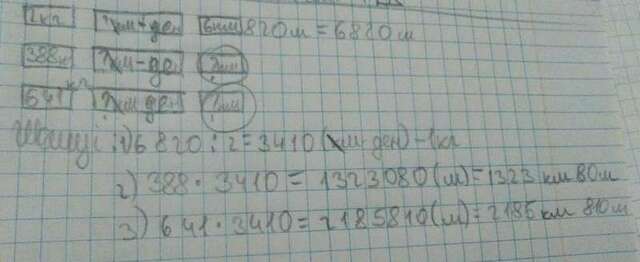 1кг хм-ден 6км 820м = 6820м
388кг хм-ден ?км
641кг хм ден ?км
Шешуі: 1) 6820 : 2 = 3410 (хм-ден) - 1кг
2) 388 · 3410 = 1323080 (м) = 1323 км 80м
3) 641 · 3410 = 2185810 (м) = 2185 км 810 м